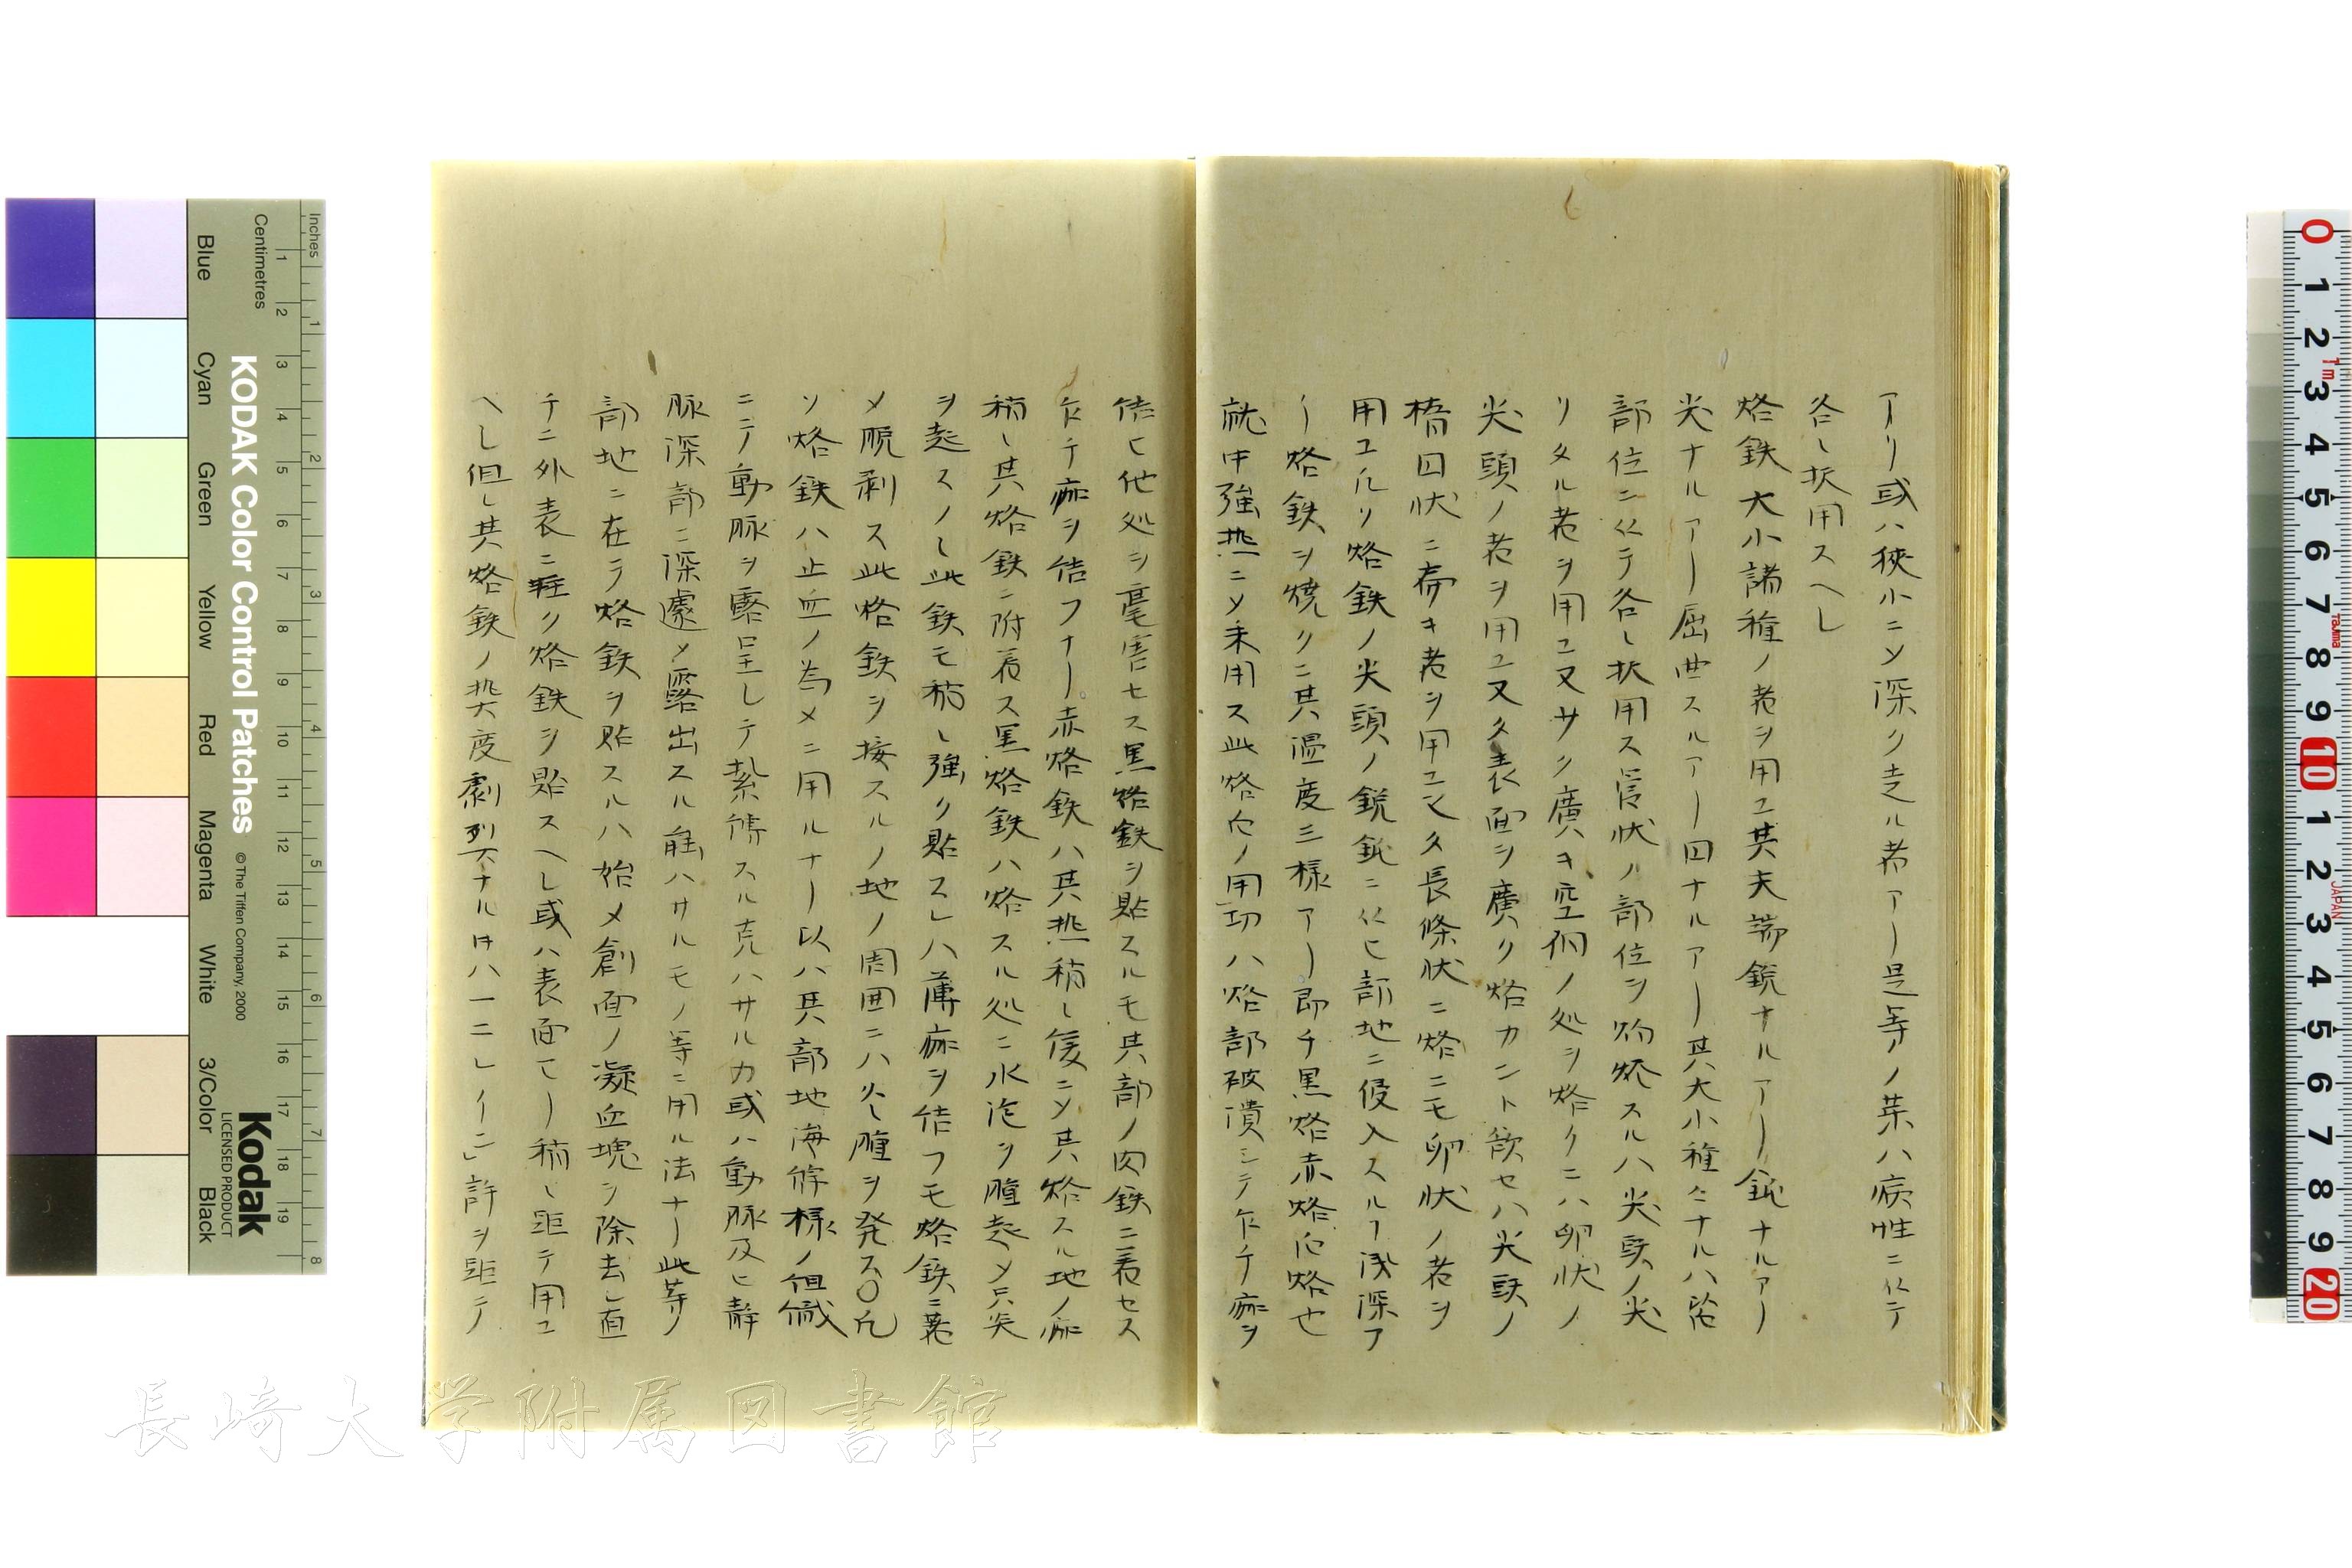 アリ或ハ狹小ニソ深ク走ル者アリ是等ノ茉ハ病性ニ仍テ
各〻扱用スヘし
烙鉄大小諸種ノ者ヲ用ユ其末端鋭ナルアリ鈍ナルアリ
尖ナルアリ屈曲スルアリ凹ナルアリ其大小種〻ナルハ
部位ニ仍テ各〻扱用ス管状ノ部位ヲ灼烙スルハ尖頭ノ尖
リタル者ヲ用ユ又サク廣キ空洞ノ処ヲ烙クニハ卵状ノ
尖頭ノ者ヲ用ユ又夕表面ヲ廣ク烙カント欲セハ尖頭ノ
楕囚状ニ斉キ者ヲ用ユ又夕長條状ニ烙ニモ卵状ノ者ヲ
用ユルリ烙鉄ノ尖頭ノ鋭鈍ニ仍ヒ部地ニ侵入スルヿ浅深ア
リ烙鉄ヲ焼クニ其温度三様アリ即チ黒烙赤烙白烙也
就中強熱ニソ釆用ス此烙白ノ用功ハ烙部被潰シテ乍チ痂ヲ
結ヒ他処ヲ毫害セス黒烙鉄ヲ貼スルモ其部ノ肉鉄ニ着セス
乍チ痂ヲ結フナリ赤烙鉄ハ其熱稍〻緩ニソ其烙スル地ノ痂
稍〻其烙鉄ニ附着ス黒烙鉄ハ烙スル処ニ水泡ヲ腫起メ只炎
ヲ起スノ〻此鉄モ稍〻強ク貼スレハ薄痂ヲ結フモ烙鉄ニ着
メ脱剥ス此烙鉄ヲ接スルノ地ノ周囲ニハ久〻腫ヲ発ス〇凡
ソ烙鉄ハ止血ノ為メニ用ルナリ以ハ其部地海綿様ノ組織
ニテ動脉ヲ露呈しテ紮縛スル克ハサルカ或ハ動脉及ヒ静
脉深部ニ深處メ露出スル能ハサルモノ等ニ用ル法ナリ此等ノ
部地ニ在テ烙鉄ヲ貼スルハ始メ創面ノ凝血塊ヲ除去し直
チニ外表ニ軽ク烙鉄ヲ貼スヘし或ハ表面ヨリ稍〻距テ用ユ
ヘし但し其烙鉄ノ熱度劇烈ナル片ハ一二「レイニ」許ヲ距テ
KODAK Color Control Patches
© The Tiffen Company, 2000
Kodak
LICENSED PRODUCT
Inches
Centimetres
Blue
Cyan
Green
Yellow
Red
Magenta
White
3/Color
Black
長崎大学附属図書館